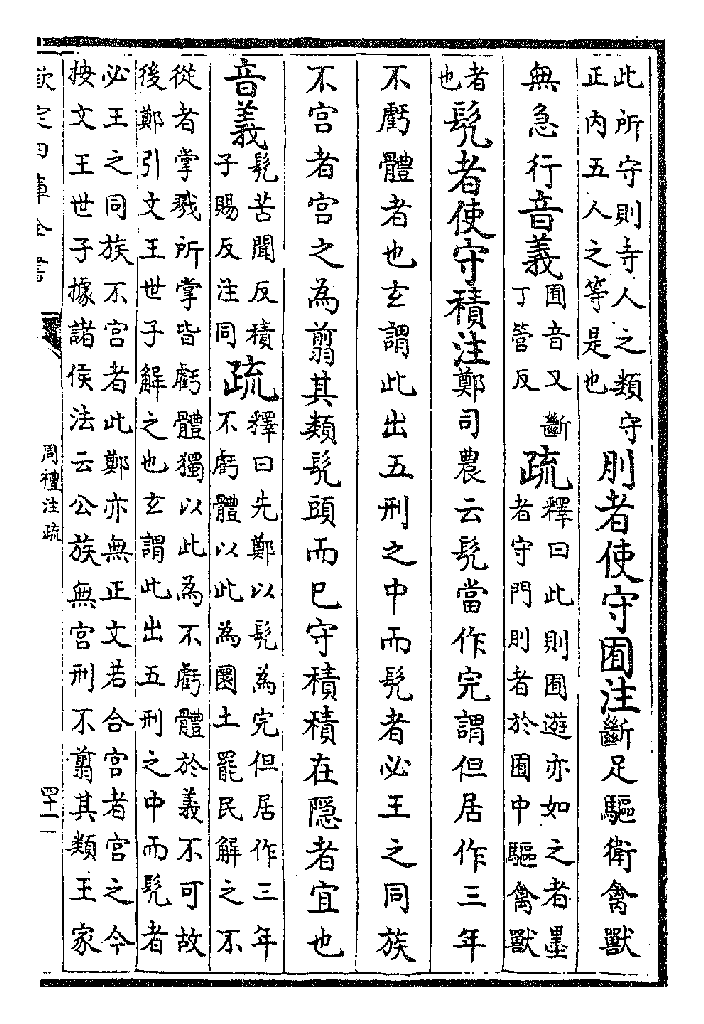 此所守則寺人之類守
正内五人之等是也
刖者使守囿注斷足驅衛禽獸
無急行音義
囿音又斷
丁管反
疏
釋曰此則囿遊亦如之者墨
者守門則者於囿中驅禽獸
者
也
髡者使守積注鄭司農云髡當作完謂但居作三年
不虧體者也玄謂此出五刑之中而髡者必王之同族
不宫者宫之為翦其類髡頭而已守積積在隱者宜也
音義
髡苦聞反積
子賜反注同
疏
釋曰先鄭以髡為完但居作三年
不虧體以此為圜土罷民解之不
從者掌戮所掌皆虧體獨以此為不虧體於義不可故
後鄭引文王世子解之也玄謂此出五刑之中而髡者
必王之同族不宫者此鄭亦無正文若合宫者宫之今
按文王世子據諸侯法云公族無宫刑不翦其類王家
欽定四庫全書
周禮注疏